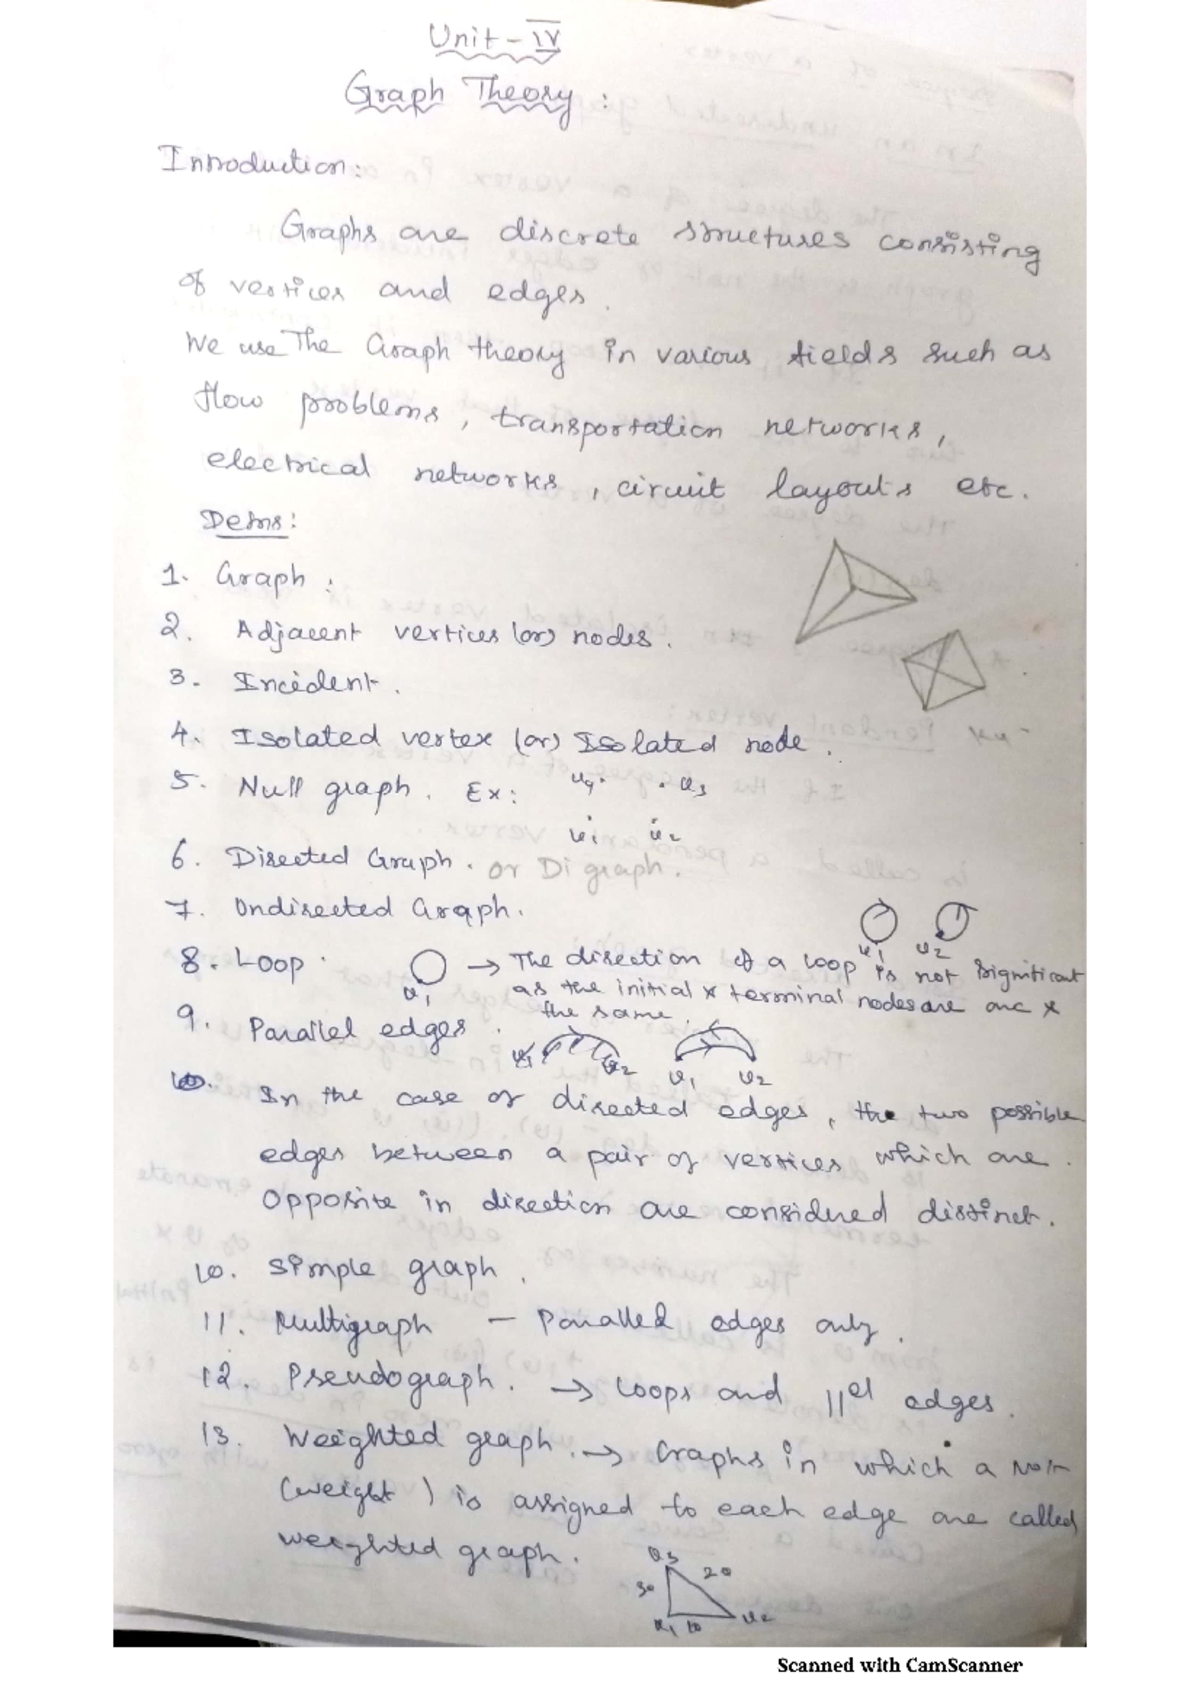 Unit - IV
Graph Theory:
Introduction:
Graphs are discrete structures consisting
of vertices and edges.
We use The Graph theory in various fields such as
flow problems, transportation networks,
electrical networks, circuit layouts etc.
Defns:
1. Graph:
2. Adjacent vertices (or) nodes.
3. Incident.
4. Isolated vertex (or) Isolated node.
5. Null graph. Ex: v4 v3
v1 v2
6. Directed Graph. or Di graph.
7. Undirected Graph.
v1 v2
8. Loop v1 → The direction of a loop is not significant
as the initial & terminal nodes are one &
the same.
9. Parallel edges. v1 v2 v1 v2
10. In the case of directed edges, the two possible
edges between a pair of vertices which are
opposite in direction are considered distinct.
10. Simple graph.
11. Multigraph – Parallel edges only.
12. Pseudograph. → Loops and ||el edges.
13. Weighted graph. → Graphs in which a No/-
(weight) is assigned to each edge are called
weighted graph.
v3
30 20
v1 10 v2
Scanned with CamScanner